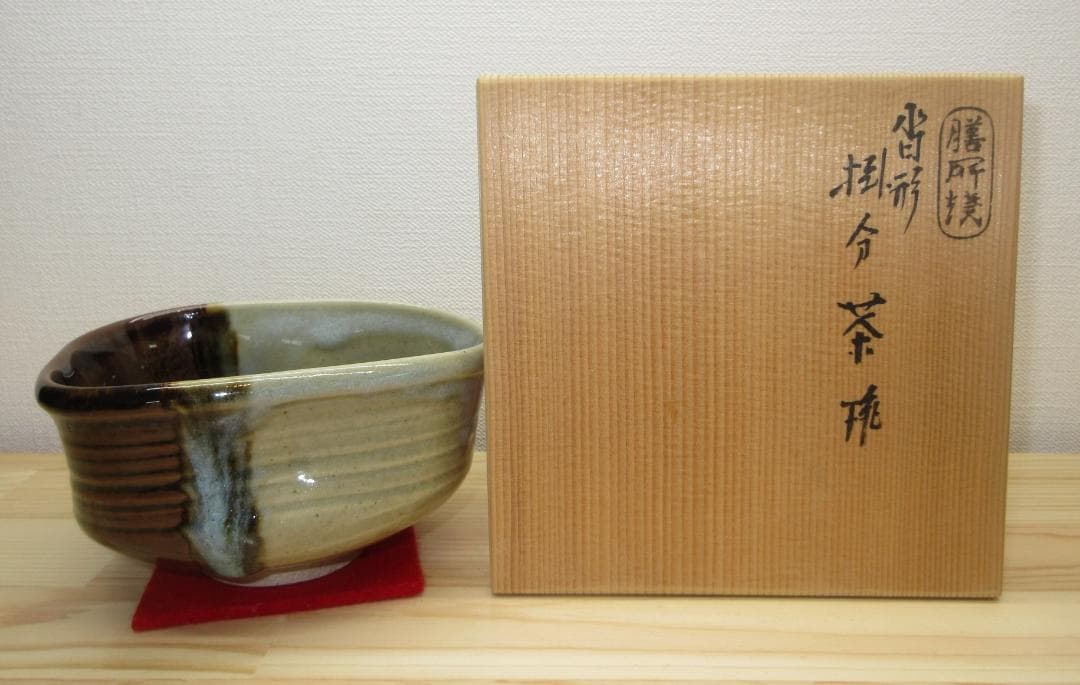 膳所焼
沓形
掛分茶埦